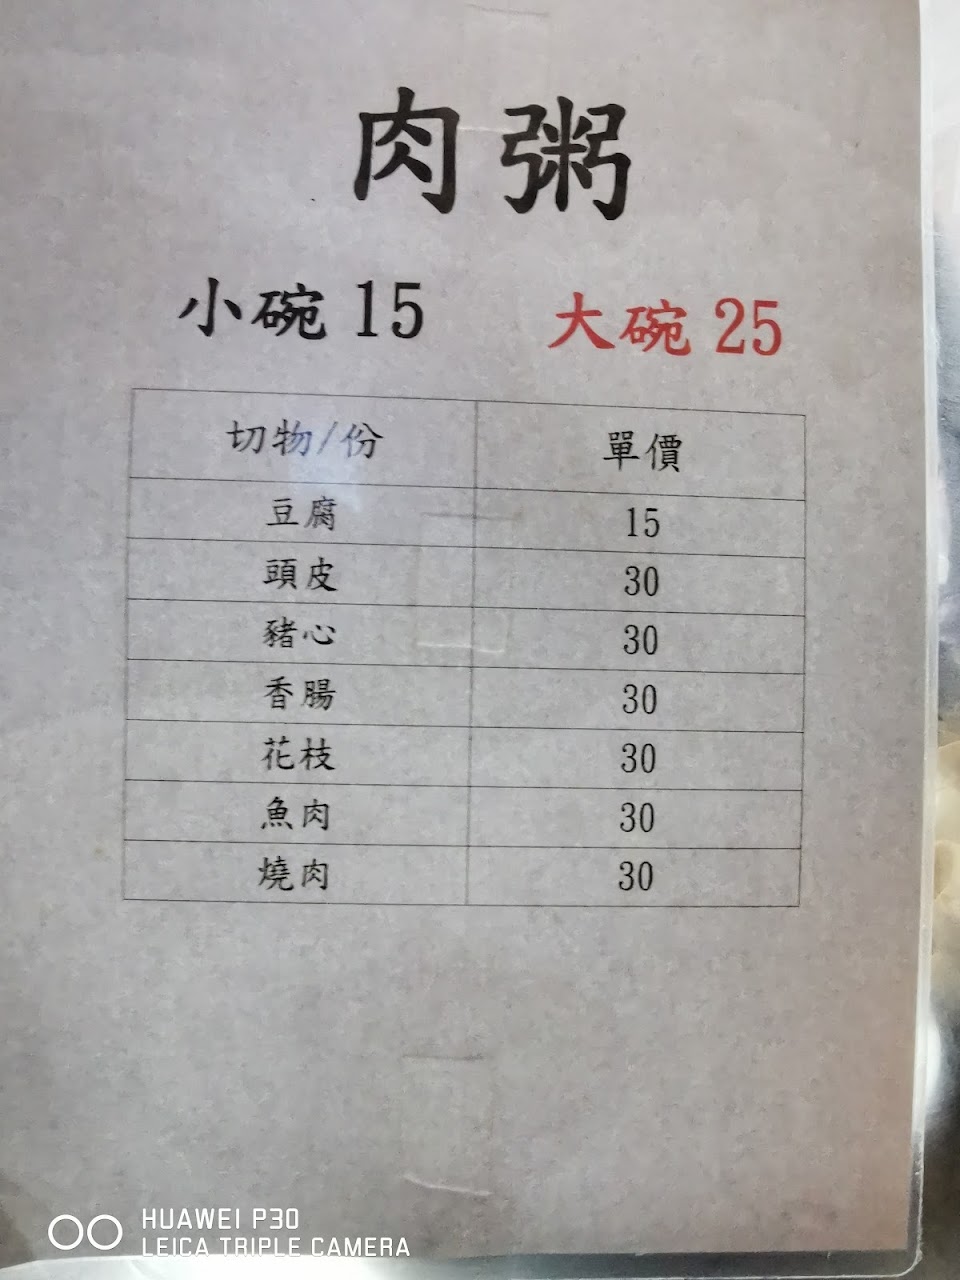 肉粥
小碗 15 大碗 25
切物/份 單價
豆腐 15
頭皮 30
豬心 30
香腸 30
花枝 30
魚肉 30
燒肉 30
HUAWEI P30
LEICA TRIPLE CAMERA